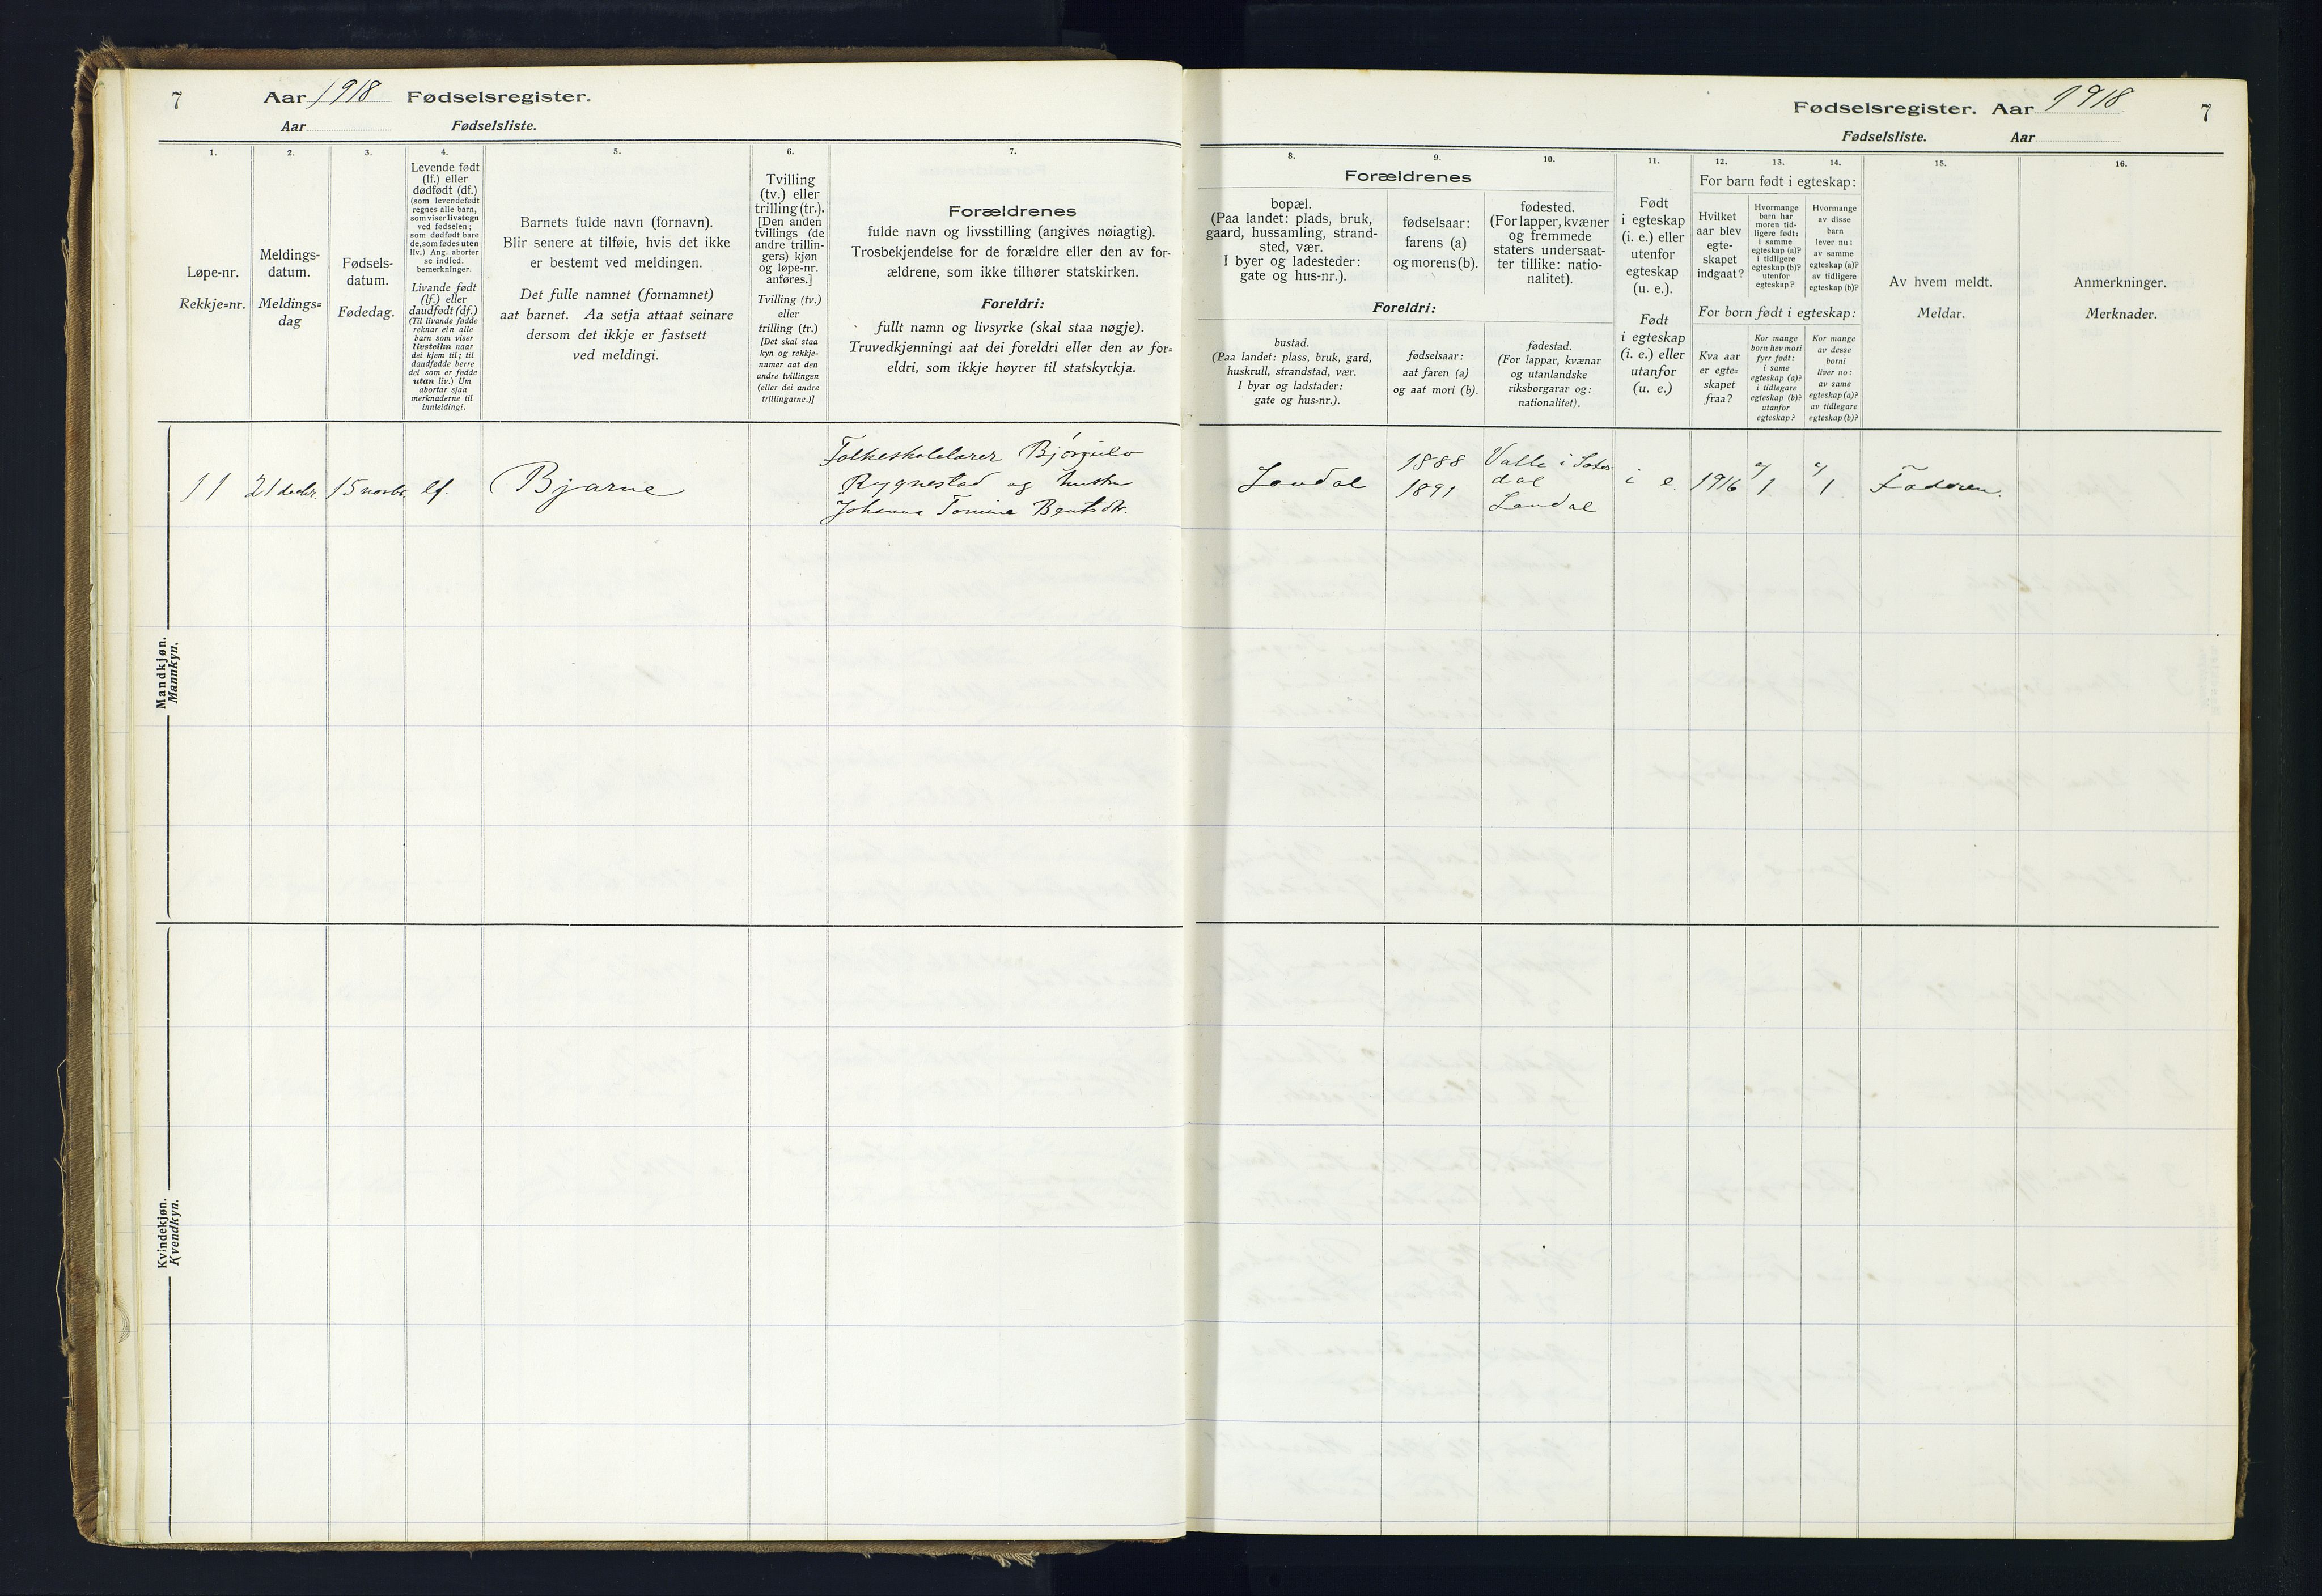 7 Aar 1918 Fødselsregister.
Aar Fødselsliste.
1.
2.
3.
4.
5.
6.
7.
Løpe-nr.
Rekkje=nr.
Meldings-
datum.
Meldings=
dag
Fødsels-
datum.
Fødedag.
Levende født
(lf.) eller
dødfødt (df.)
(som levendefødt
regnes alle barn,
som viser livstegn
ved fødselen;
som dødfødt bare
de, som fødes uten
liv.) Ang. aborter
se indled.
bemerkninger.
Livande født
(lf.) eller
daudfødt (df.)
(Til livande fødde
reknar ein alle
barn som viser
livsteikn naar
dei kjem til; til
daudfødde berre
dei som er fødde
utan liv.) Um
abortar sjaa
merknaderne til
innleidingi.
Barnets fulde navn (fornavn).
Blir senere at tilføie, hvis det ikke
er bestemt ved meldingen.
Det fulle namnet (fornamnet)
aat barnet. Aa setja attaat seinare
dersom det ikkje er fastsett
ved meldingi.
Tvilling
(tv.) eller
trilling (tr.).
[Den anden
tvillings (de
andre trillin-
gers) kjøn
og løpe-nr.
anføres.]
Tvilling (tv.)
eller
trilling (tr.)
[Det skal staa
kyn og rekkje-
numer aat den
andre tvillingen
(eller dei andre
trillingarne.)]
Forældrenes
fulde navn og livsstilling (angives nøiagtig).
Trosbekjendelse for de forældre eller den av for-
ældrene, som ikke tilhører statskirken.
Foreldri:
fullt namn og livsyrke (skal staa nøgje).
Truvedkjenningi aat dei foreldri eller den av for=
eldri, som ikkje høyrer til statskyrkja.
11 21 decbr. 15 novbr. lf. Bjarne
Folkeskolelærer Bjørgulv
Rygnestad og hustru
Johanna Tomine Bentsdtr.
Mandkjøn.
Mannkyn.
Kvindekjøn.
Kvendkyn.
Fødselsregister. Aar 1918 7
Fødselsliste. Aar
8.
9.
10.
11.
12.
13.
14.
15.
16.
Forældrenes
bopæl.
(Paa landet: plads, bruk,
gaard, hussamling, strand-
sted, vær.
I byer og ladesteder:
gate og hus-nr.).
fødselsaar:
farens (a)
og morens (b).
fødested.
(For lapper, kvæner
og fremmede
staters undersaat-
ter tillike: natio-
nalitet).
Foreldri:
bustad.
(Paa landet: plass, bruk, gard,
huskrull, strandstad, vær.
I byar og ladstader:
gate og hus=nr.).
fødselsaar:
aat faren (a)
og aat mori (b).
fødestad.
(For lappar, kvænar
og utanlandske
riksborgarar og:
nationalitet).
Født
i egteskap
(i. e.) eller
utenfor
egteskap
(u. e.).
Født
i egteskap
(i. e.) eller
utanfor
(u. e.)
For barn født i egteskap:
Hvilket
aar blev
egte-
skapet
indgaat?
Hvormange
barn har
moren tid-
ligere født:
i samme
egteskap (a)?
i tidligere
egteskap (b)?
utenfor
egteskap?
Hvormange
av disse
barn
lever nu:
av samme
egteskap (a)?
av tidligere
egteskap (b)?
For born født i egteskap:
Kva aar
er egte=
skapet
fraa?
Kor mange
born hev mori
fyrr født:
i same
egteskap (a)?
i tidlegare
egteskap (b)?
utanfor
egteskap?
Kor mange
av desse
borni
liver no:
av same
egteskap (a)?
av tidlegare
egteskap (b)?
Av hvem meldt.
Meldar.
Anmerkninger.
Merknader.
Laudal
1888
1891
Valle i Sætes-
dal
Laudal
i e. 1916 a/1 a/1 Faderen.